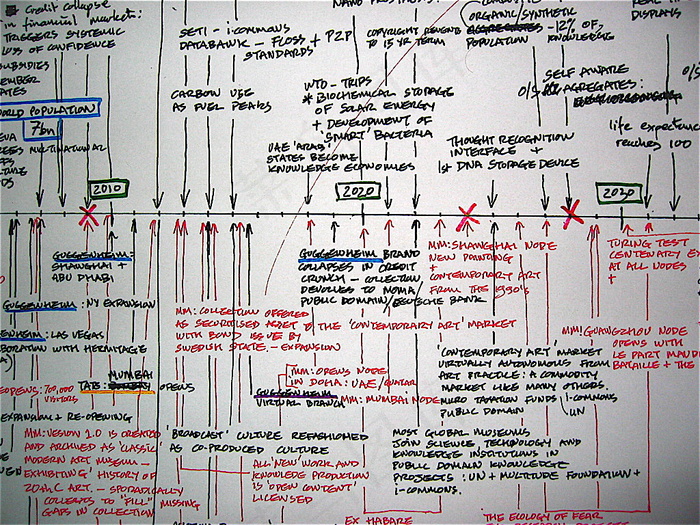 Credit collapse
in financial markets:
triggers systemic
loss of confidence
SUBSIDIES
WORLD POPULATION
7bn
MULTINATIONAL
SETI - i-commons
DATABANK - FLOSS + P2P
STANDARDS
CARBON USE
AS FUEL PEAKS
COPYRIGHT REVERTS
TO 15 YR TERM
ORGANIC/SYNTHETIC
POPULATION
-12% OF
KNOWLEDGE
DISPLAYS
WTO - TRIPS
* BIOCHEMICAL STORAGE
OF SOLAR ENERGY
+ DEVELOPMENT OF
'SMART' BACTERIA
UAE 'ARAB'
STATES BECOME
KNOWLEDGE ECONOMIES
SELF AWARE
AGGREGATES:
THOUGHT RECOGNITION
INTERFACE +
1st DNA STORAGE DEVICE
life expectancy
reaches 100
2010
2020
GUGGENHEIM:
SHANGHAI +
ABU DHABI
GUGGENHEIM: NY EXPANSION
LAS VEGAS
WITH HERMITAGE
MUMBAI
OPENS
REOPENS: 700,000
VISITORS
EXPANSION + RE-OPENING
MM: VERSION 1.0 IS CREATED
AND ARCHIVED AS 'CLASSIC'
MODERN ART MUSEUM -
EXHIBITING HISTORY OF
20th C ART. - SPORADICALLY
COLLECTS TO "FILL" MISSING
GAPS IN COLLECTION
MM: COLLECTION OFFERED
AS SECURITISED ASSET TO THE 'CONTEMPORARY ART' MARKET
WITH BOND ISSUE BY
SWEDISH STATE. - EXPANSION
GUGGENHEIM BRAND
COLLAPSES IN CREDIT
CRUNCH - COLLECTION
DEVOLVES TO MOMA/
PUBLIC DOMAIN/DEUTSCHE BANK
MM: SHANGHAI NODE
NEW PAINTING
+
CONTEMPORARY ART
FROM THE 1990's
TURING TEST
CENTENARY
AT ALL NODES
+
MM: OPENS NODE
IN DOHA: UAE/QATAR
GUGGENHEIM
VIRTUAL BRANCH
MM: MUMBAI NODE
'CONTEMPORARY ART' MARKET
VIRTUALLY AUTONOMOUS FROM
ART PRACTICE: A COMMODITY
MARKET LIKE MANY OTHERS.
MICRO TAXATION FUNDS I-COMMONS
PUBLIC DOMAIN UN
MM: GUANGZHOU NODE
OPENS WITH
LE PART MAUDI
BATAILLE + THE
'BROADCAST' CULTURE REFASHIONED
AS CO-PRODUCED CULTURE
ALL NEW WORK AND
KNOWLEDGE PRODUCTION
IS 'OPEN CONTENT'
LICENSED
MOST GLOBAL MUSEUMS
JOIN SCIENCE, TECHNOLOGY AND
KNOWLEDGE INSTITUTIONS IN
PUBLIC DOMAIN KNOWLEDGE
PROJECTS: UN + MULTITUDE FOUNDATION +
I-COMMONS.
EX HABARE
THE ECOLOGY OF FEAR